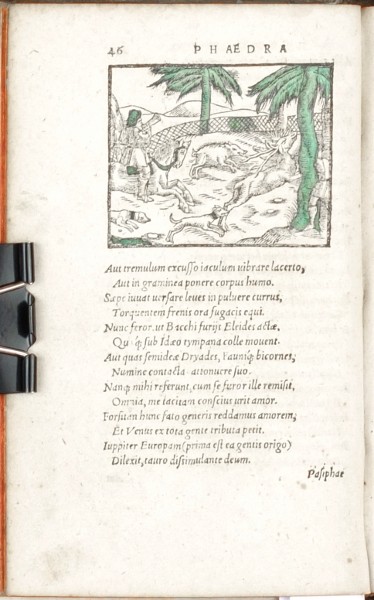 46
PHAEDRA
Aut tremulum excusso iaculum uibrare lacerto,
Aut in graminea ponere corpus humo.
Sæpe iuuat uersare leues in puluere currus,
Torquentem frenis ora fugacis equi.
Nunc feror, ut Bacchi furijs Eleides actæ,
Quæq; sub Idæo tympana colle mouent.
Aut quas semideæ Dryades, Fauniq; bicornes,
Numine contactas attonuere suo.
Nanq; mihi referunt, cum se furor ille remisit,
Omnia, me tacitam conscius urit amor.
Forsitan hunc fato generis reddamus amorem,
Et Venus ex tota gente tributa petit.
Iuppiter Europam (prima est ea gentis origo)
Dilexit, tauro dissimulante deum.
Pasiphae